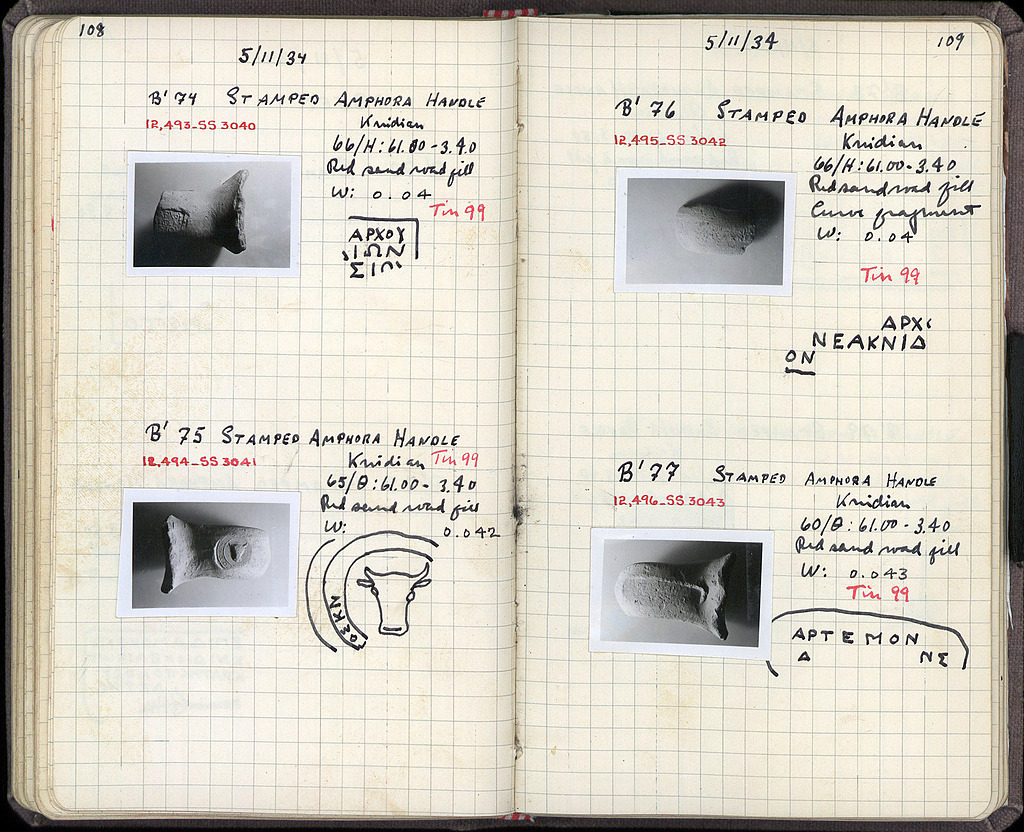 108
5/11/34
B' 74 STAMPED AMPHORA HANDLE
12,493-SS 3040
Knidian
66/H:61.00-3.40
Red sand road fill
W: 0.04
Tin 99
ΑΡΧΟΥ
B' 75 STAMPED AMPHORA HANDLE
12,494-SS 3041
Knidian Tin 99
65/Θ:61.00-3.40
Red sand road fill
W: 0.042
109
5/11/34
B' 76 STAMPED AMPHORA HANDLE
12,495-SS 3042
Knidian
66/H:61.00-3.40
Red sand road fill
Curve fragment
W: 0.04
Tin 99
ΔΡΧ
ΝΕΑΚΝΙΔ
ΟΝ
B' 77 STAMPED AMPHORA HANDLE
12,496-SS 3043
Knidian
60/Θ:61.00-3.40
Red sand road fill
W: 0.043
Tin 99
ΑΡΤΕΜΟΝ
Δ ΝΣ